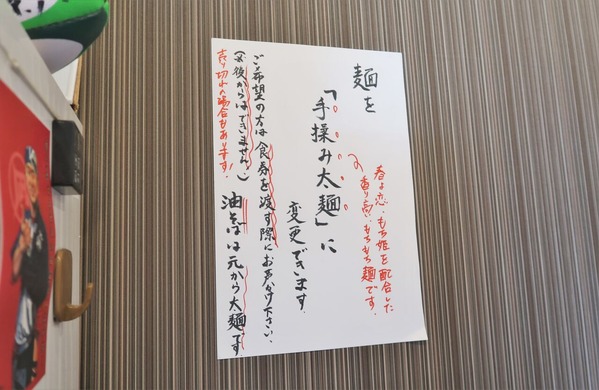 麺を
「手揉み太麺」に
変更できます。
春よ恋、もち姫を配合した
香り高いもちもち麺です。
ご希望の方は食券を渡す際にお声かけ下さい、
(※後からはできません。) 油そばは元から太麺です。
売り切れの場合もあります!